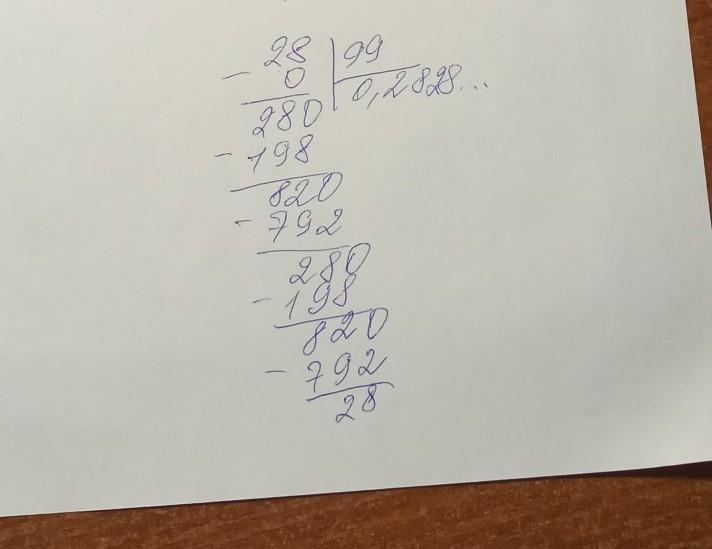 28 | 99
- 0 | 0,2828...
280
- 198
820
- 792
280
- 198
820
- 792
28